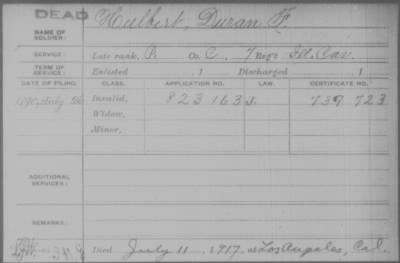 DEAD
NAME OF SOLDIER: Hulbert, Duran F.
SERVICE: Late rank, P. Co. C, 7 Reg't Ill. Cav.
TERM OF SERVICE: Enlisted , 1 Discharged , 1
DATE OF FILING. CLASS. APPLICATION NO. LAW. CERTIFICATE NO.
1890, July 26 Invalid, 823 163 J. 739 723
Widow,
Minor,
ADDITIONAL SERVICES:
REMARKS:
Died July 11, 1917, at Los Angeles, Cal.